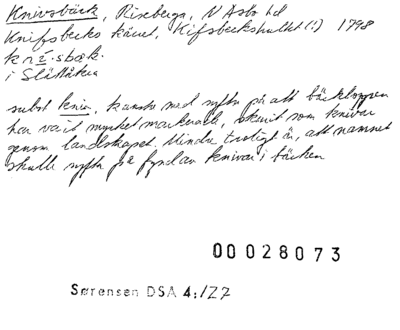 Knivsbäck, Riseberga, N Åsbo hd
Knifsbecks käret, Kifsbeckshultet (!) 1798
knï·sbæk.
i Slättåkra
subst kniv, kanske med syfte på att bäckloppen
har varit mycket markerade, skurit som knivar
genom landskapet. Mindre troligt är, att namnet
skulle syfta på fynd av knivar i bäcken
00028073
Sørensen DSA 4:/Z7